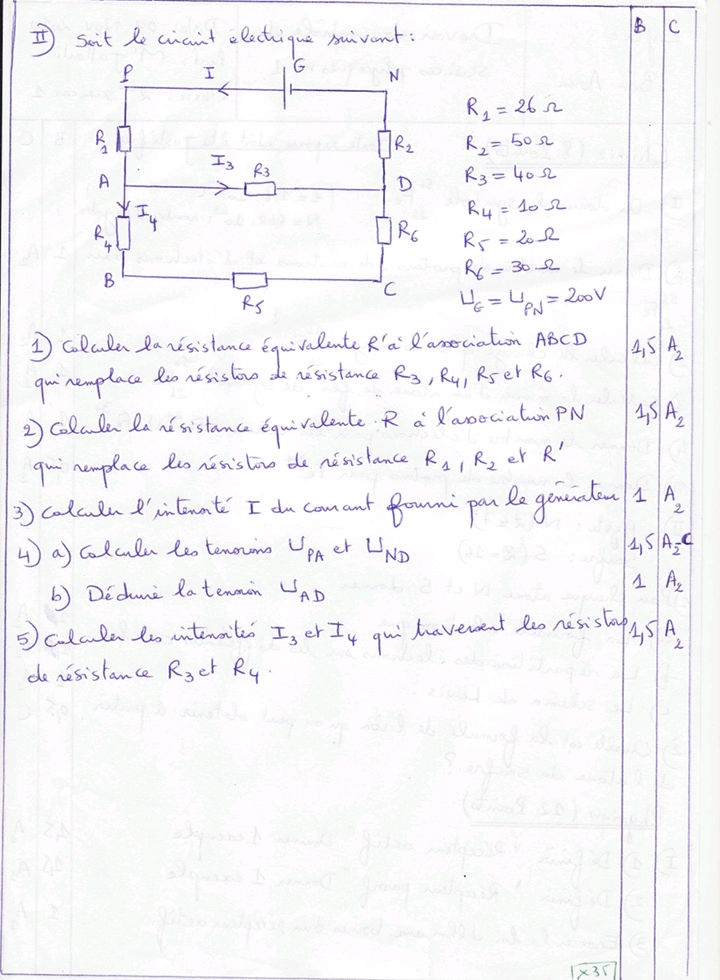 B C
II) Soit le circuit électrique suivant :
P I G N
R1 R2
I3
R3
A D
I4
R4 R6
B C
R5
R1 = 26 Ω
R2 = 50 Ω
R3 = 40 Ω
R4 = 10 Ω
R5 = 20 Ω
R6 = 30 Ω
UG = UPN = 200V
1) Calculer la résistance équivalente R' à l'association ABCD 1,5 A2
qui remplace les résistors de résistance R3, R4, R5 et R6.
2) Calculer la résistance équivalente R à l'association PN 1,5 A2
qui remplace les résistors de résistance R1, R2 et R'
3) Calculer l'intensité I du courant fourni par le générateur 1 A2
4) a) Calculer les tensions UPA et UND 1,5 A2-C
b) Déduire la tension UAD 1 A2
5) Calculer les intensités I3 et I4 qui traversent les résistors 1,5 A2
de résistance R3 et R4.
x35